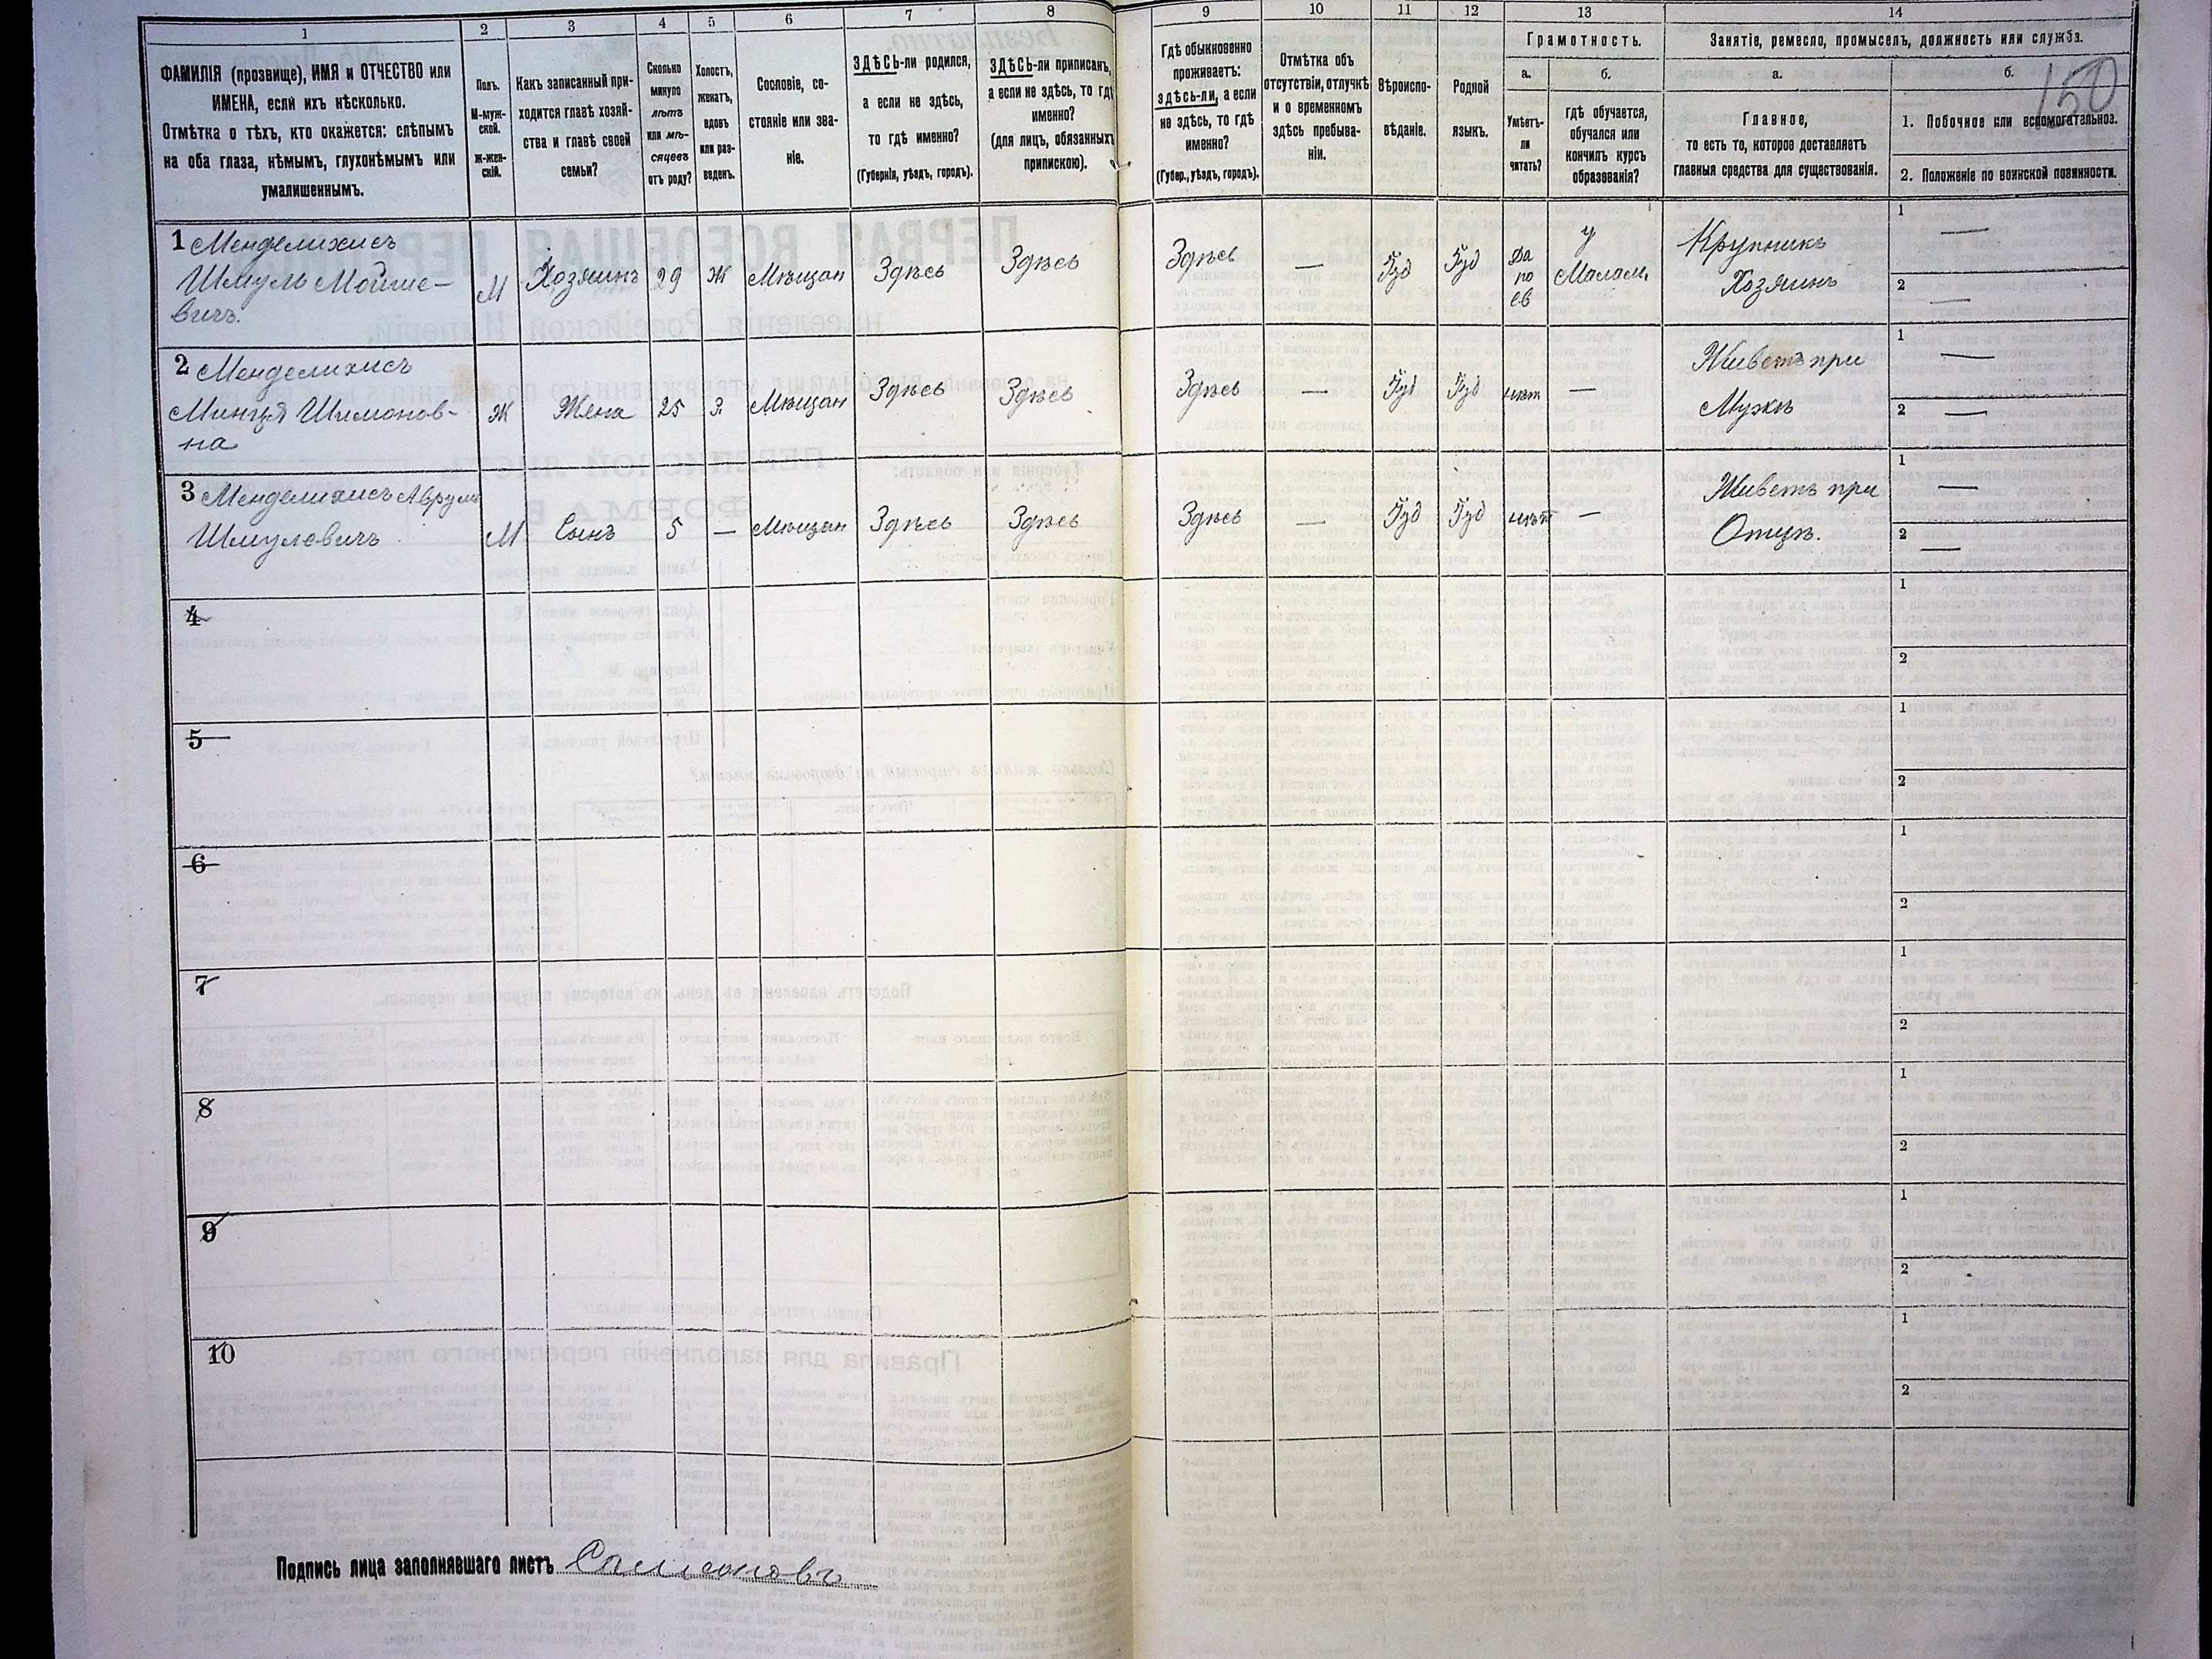 1 2 3 4 5 6 7 8 9 10 11 12 13 14
ФАМИЛІЯ (прозвище), ИМЯ и ОТЧЕСТВО или
ИМЕНА, если ихъ нѣсколько.
Отмѣтка о тѣхъ, кто окажется: слѣпымъ
на оба глаза, нѣмымъ, глухонѣмымъ или
умалишеннымъ.
Полъ.
М-муж-
ской.
Ж-жен-
скій.
Какъ записанный при-
ходится главѣ хозяй-
ства и главѣ своей
семьи?
Сколько
минуло
лѣтъ
или мѣ-
сяцевъ
отъ роду?
Холостъ,
женатъ,
вдовъ
или раз-
веденъ.
Сословіе, со-
стояніе или зва-
ніе.
ЗДѢСЬ-ли родился,
а если не здѣсь,
то гдѣ именно?
(Губернія, уѣздъ, городъ).
ЗДѢСЬ-ли приписанъ,
а если не здѣсь, то гдѣ
именно?
(для лицъ, обязанныхъ
припискою).
Гдѣ обыкновенно
проживаетъ:
здѣсь-ли, а если
не здѣсь, то гдѣ
именно?
(Губер., уѣздъ, городъ).
Отмѣтка объ
отсутствіи, отлучкѣ
и о временномъ
здѣсь пребыва-
ніи.
Вѣроиспо-
вѣданіе.
Родной
языкъ.
Грамотность.
а.
Умѣетъ-
ли
читать?
б.
гдѣ обучается,
обучался или
кончилъ курсъ
образованія?
Занятіе, ремесло, промыселъ, должность или служба.
а.
Главное,
то есть то, которое доставляетъ
главныя средства для существованія.
б.
150
1. Побочное или вспомогательное.
2. Положеніе по воинской повинности.
1 Менделихисъ
Шмуль Мойше-
вичъ.
М Хозяинъ 29 Ж Мѣщан Здѣсь Здѣсь Здѣсь — Іуд Іуд
да
по
ев
у
Малам.
Крупникъ
Хозяинъ
1 —
2 —
2 Менделихисъ
Минця Шимонов-
на
Ж Жена 25 З. Мѣщан Здѣсь Здѣсь Здѣсь — Іуд Іуд нѣт —
Живетъ при
Мужѣ
1 —
2 —
3 Менделихисъ Аврум
Шмулевичъ
М Сынъ 5 — Мѣщан Здѣсь Здѣсь Здѣсь — Іуд Іуд нѣт —
Живетъ при
Отцѣ.
1 —
2 —
4
1
2
5
1
2
6
1
2
7
1
2
8
1
2
9
1
2
10
1
2
Подпись лица заполнявшаго листъ